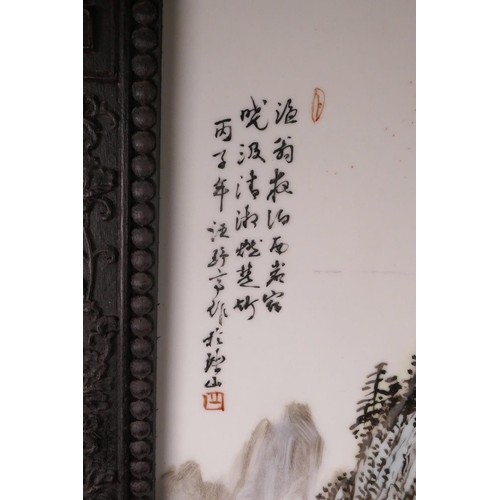 渔翁夜泊西岩宿
晓汲清湘燃楚竹
丙子年汪野亭作於珠山